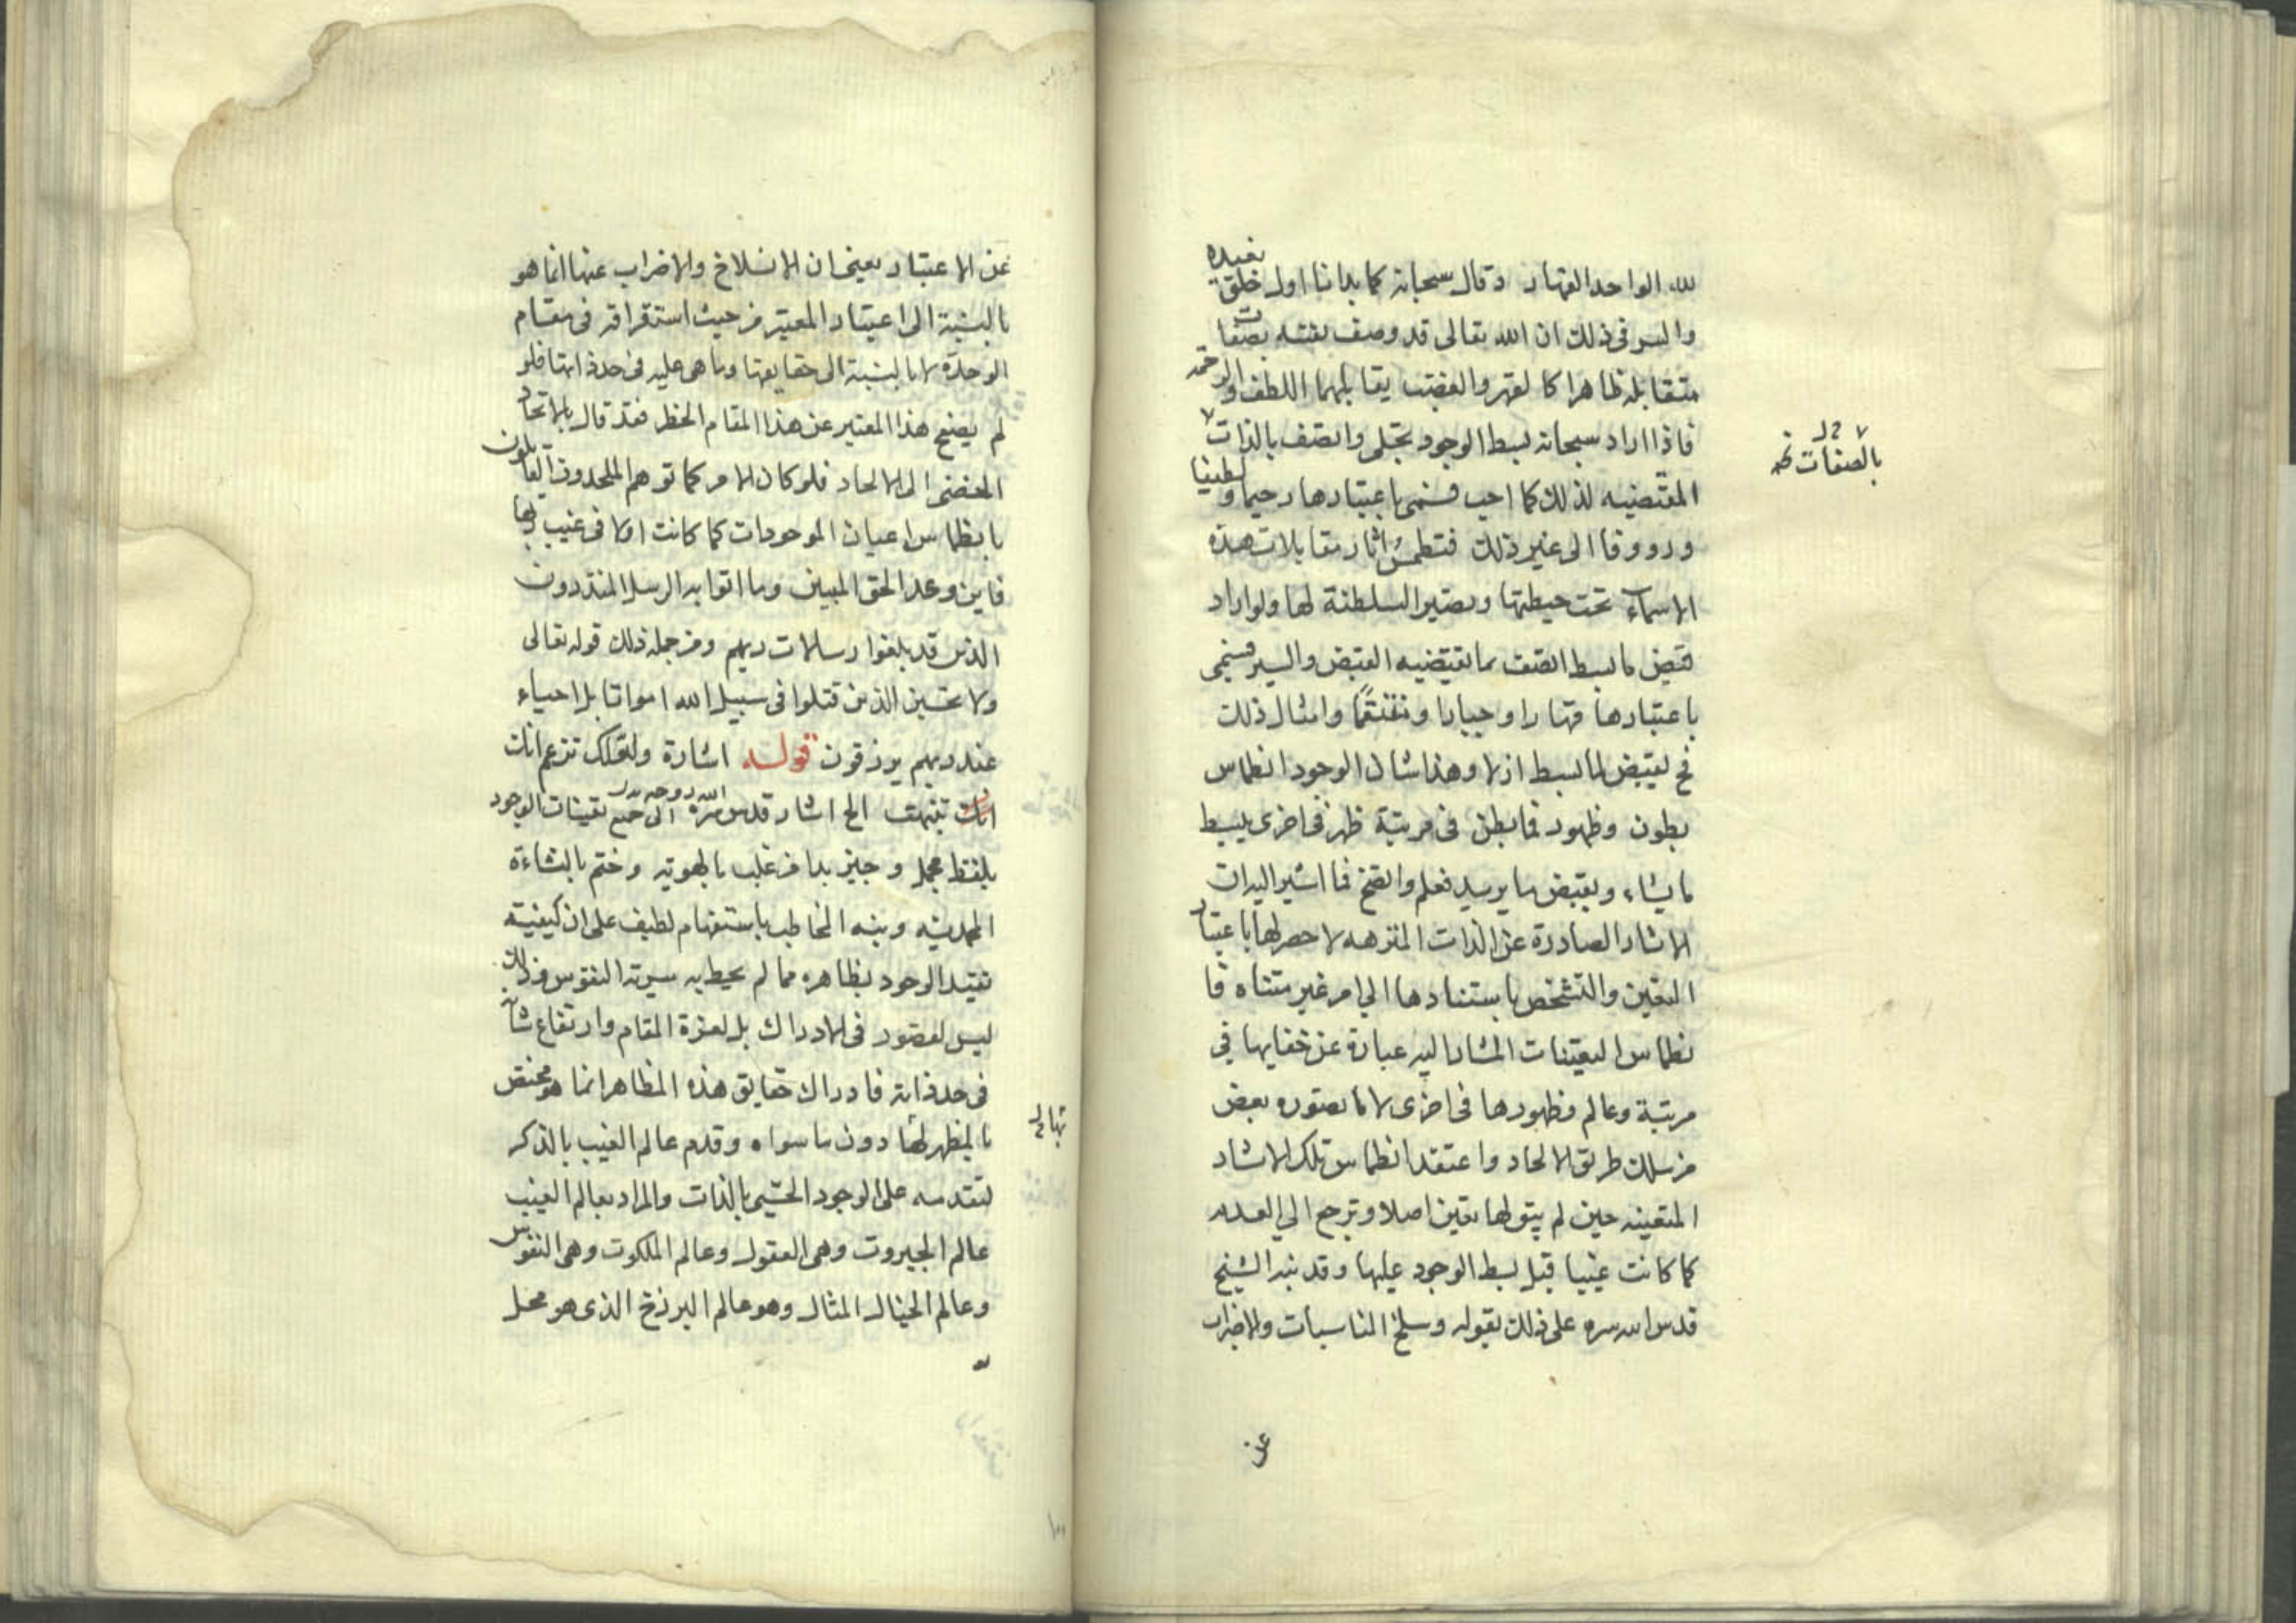 لله الواحد القهار وقال سبحانه كما بدانا اول خلق نعيده
والسر فى ذلك ان الله تعالى قد وصف نفسه بصفات
متقابله ظاهرا كالقهر والغضب يقابلهما اللطف والرحمه
فاذا اراد سبحانه بسط الوجود تجلى واتصف بالذات
بالصفات نخه
المقتضيه لذلك كما احب فسمى باعتبارها رحيما ولطيفا
وروؤفا الى غير ذلك فتطمس اثار مقابلات هذه
الاسماء تحت حيطتها وتصير السلطنة لها ولو اراد
قبض ما بسط اتصف بما تقتضيه القبض والستر فسمى
باعتبارها قهارا وجبارا ومنتقما وامثال ذلك
فح يقبض لما بسط ازلا وهذا شان الوجود انطماس
بطون وظهور فما بطن فى مرتبة ظهر فى اخرى يبسط
ما يشاء ويقبض ما يريد فعلم واتضح فما اشير اليه ان
الاثار الصادرة عن الذات المنزهه لا حصر لها باعتبار
التعين والتشخص باستنادها الي امر غير متناه فا
نطماس التعينات المشار اليه عبارة عن خفايها في
مرتبة وعالم وظهورها فى اخرى لا ما تصوره بعض
من سلك طريق الالحاد واعتقد انطماس تلك الاثار
المتعينه حين لم يبق لها تعين اصلا وترجع الي العدم
كما كانت غيبا قبل بسط الوجود عليها وقد نبه الشيخ
قدس الله سره على ذلك بقوله وسلخ المناسبات والاضراب
عن
عن الاعتبار يعنى ان الانسلاخ والاضراب عنها انما هو
بالنسبة الى اعتبار المعتبر من حيث استقراقه فى مقام
الوحدة لا بالنسبة الى حقايقها وما هى عليه فى حد ذاتها فلو
لم يضع هذا المعتبر عن هذا المقام الخطر فقد قال بالاتحاد
المفضى الى الالحاد فلو كان الامر كما توهم الملحدون القايلون
بانطماس اعيان الموجودات كما كانت اولا فى غيب ربها
فاين وعد الحق المبين وما اتوا به الرسل المنذرون
الذين قد بلغوا رسالات ربهم ومن جملة ذلك قوله تعالى
ولا تحسبن الذين قتلوا فى سبيل الله امواتا بل احياء
عند ربهم يرزقون قوله اشارة ولعلك تزعم انك
انك تفهمت الخ اشار قدس الله روحه سره الى جميع تعينات الوجود
بلفظ مجمل وجيز بدا من غلب بالهويه وختم بالنشاءة
المحمديه ونبه المخاطب باستفهام لطيف على ان كيفيته
تقيد الوجود بظاهره مما لم يحيط به سيرته النفوس وذلك
ليس لقصور فى الادراك بل لعزة المقام وارتفاع شانه
فى حد ذاته فادراك حقايق هذه المظاهر انما هو مختص
بالمظهر لها دون ما سواه وقدم عالم الغيب بالذكر
لتقدمه على الوجود الحسى بالذات والمراد بعالم الغيب
عالم الجبروت وهى العقول وعالم الملكوت وهى النفوس
وعالم الخيال المثال وهو عالم البرزخ الذى هو محل
١٠٠